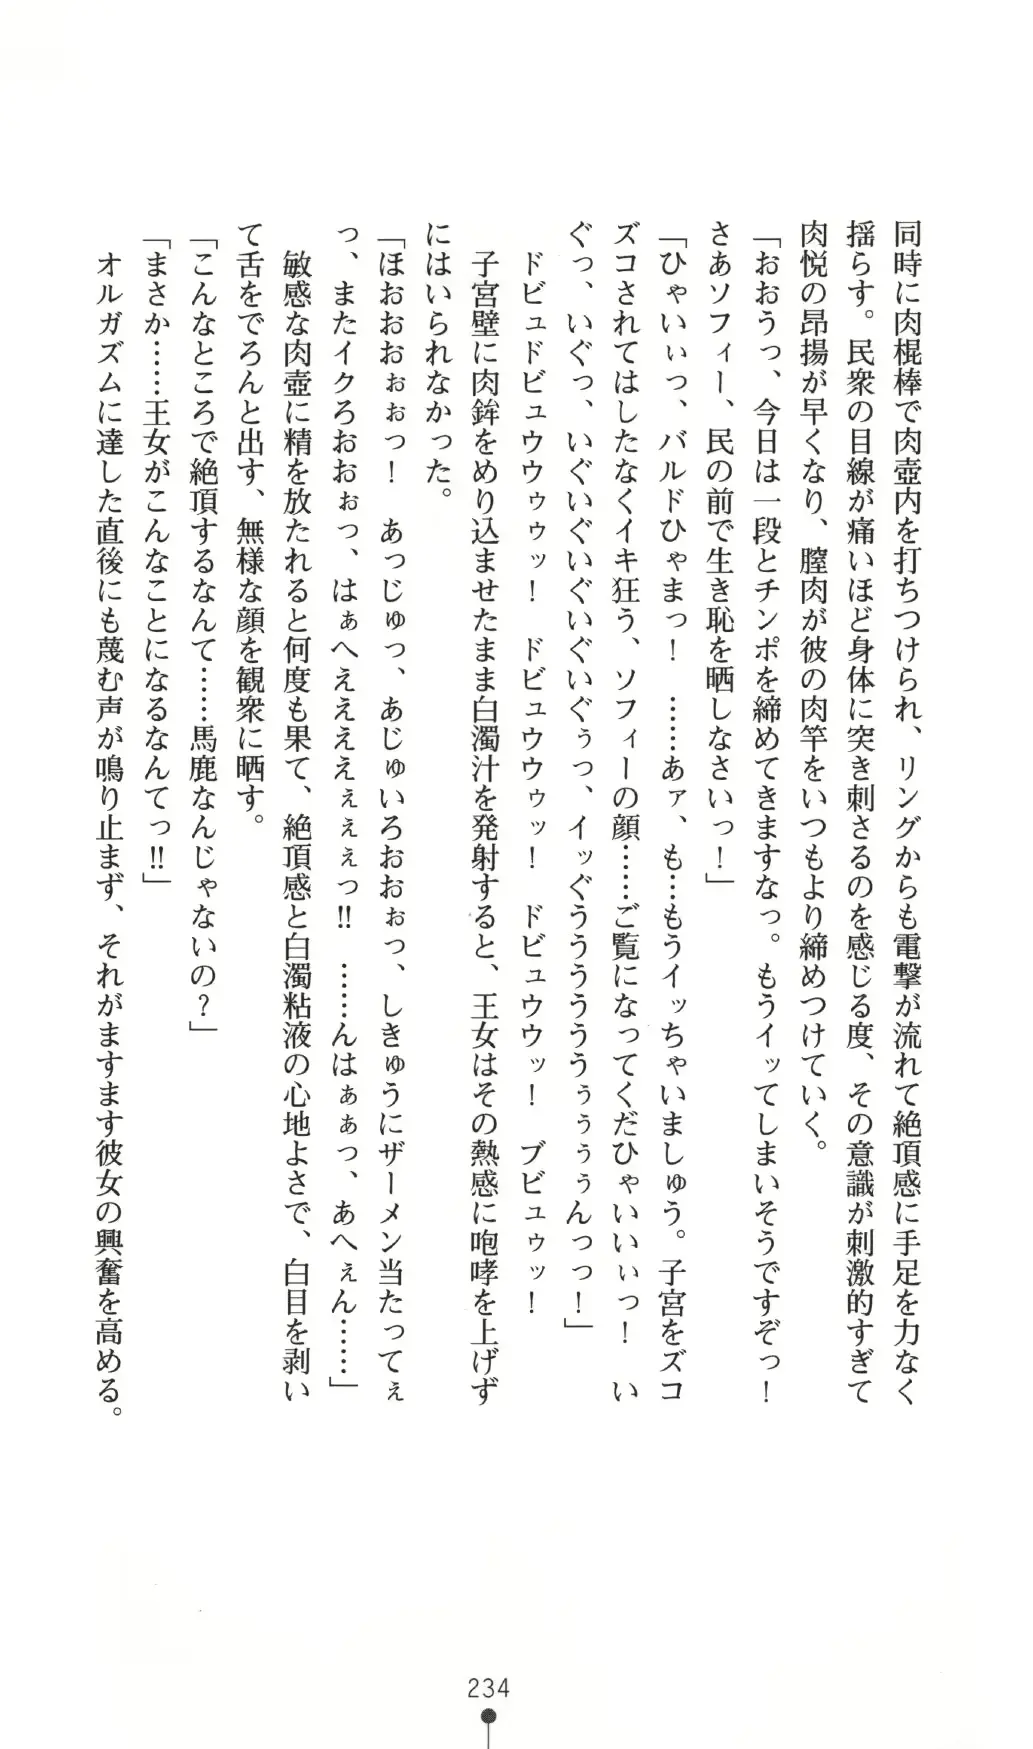 同時に肉棍棒で肉壺内を打ちつけられ、リングからも電撃が流れて絶頂感に手足を力なく
揺らす。民衆の目線が痛いほど身体に突き刺さるのを感じる度、その意識が刺激的すぎて
肉悦の昂揚が早くなり、膣肉が彼の肉竿をいつもより締めつけていく。
「おおうっ、今日は一段とチンポを締めてきますなっ。もうイッてしまいそうですぞっ！
さあソフィー、民の前で生き恥を晒しなさいっ！」
「ひゃいぃっ、バルドひゃまっ！　……あァ、も…もうイッちゃいましゅう。子宮をズコ
ズコされてはしたなくイキ狂う、ソフィーの顔……ご覧になってくだひゃいいぃっ！　い
ぐっ、いぐっ、いぐいぐいぐいぐいぐぅっ、イッぐうううううぅぅぅんっっ！」
ドビュドビュウウゥゥッ！　ドビュウウゥッ！　ドビュウウッ！　ブビュゥッ！
子宮壁に肉鉾をめり込ませたまま白濁汁を発射すると、王女はその熱感に咆哮を上げず
にはいられなかった。
「ほおおおぉぉっ！　あっじゅっ、あじゅいろおおぉっ、しきゅうにザーメン当たってぇ
っ、またイクろおおぉっ、はぁへええええぇぇぇっ!!　……んはぁぁっ、あへぇん……」
敏感な肉壺に精を放たれると何度も果て、絶頂感と白濁粘液の心地よさで、白目を剥い
て舌をでろんと出す、無様な顔を観衆に晒す。
「こんなところで絶頂するなんて……馬鹿なんじゃないの？」
「まさか……王女がこんなことになるなんてっ!!」
オルガズムに達した直後にも蔑む声が鳴り止まず、それがますます彼女の興奮を高める。
234